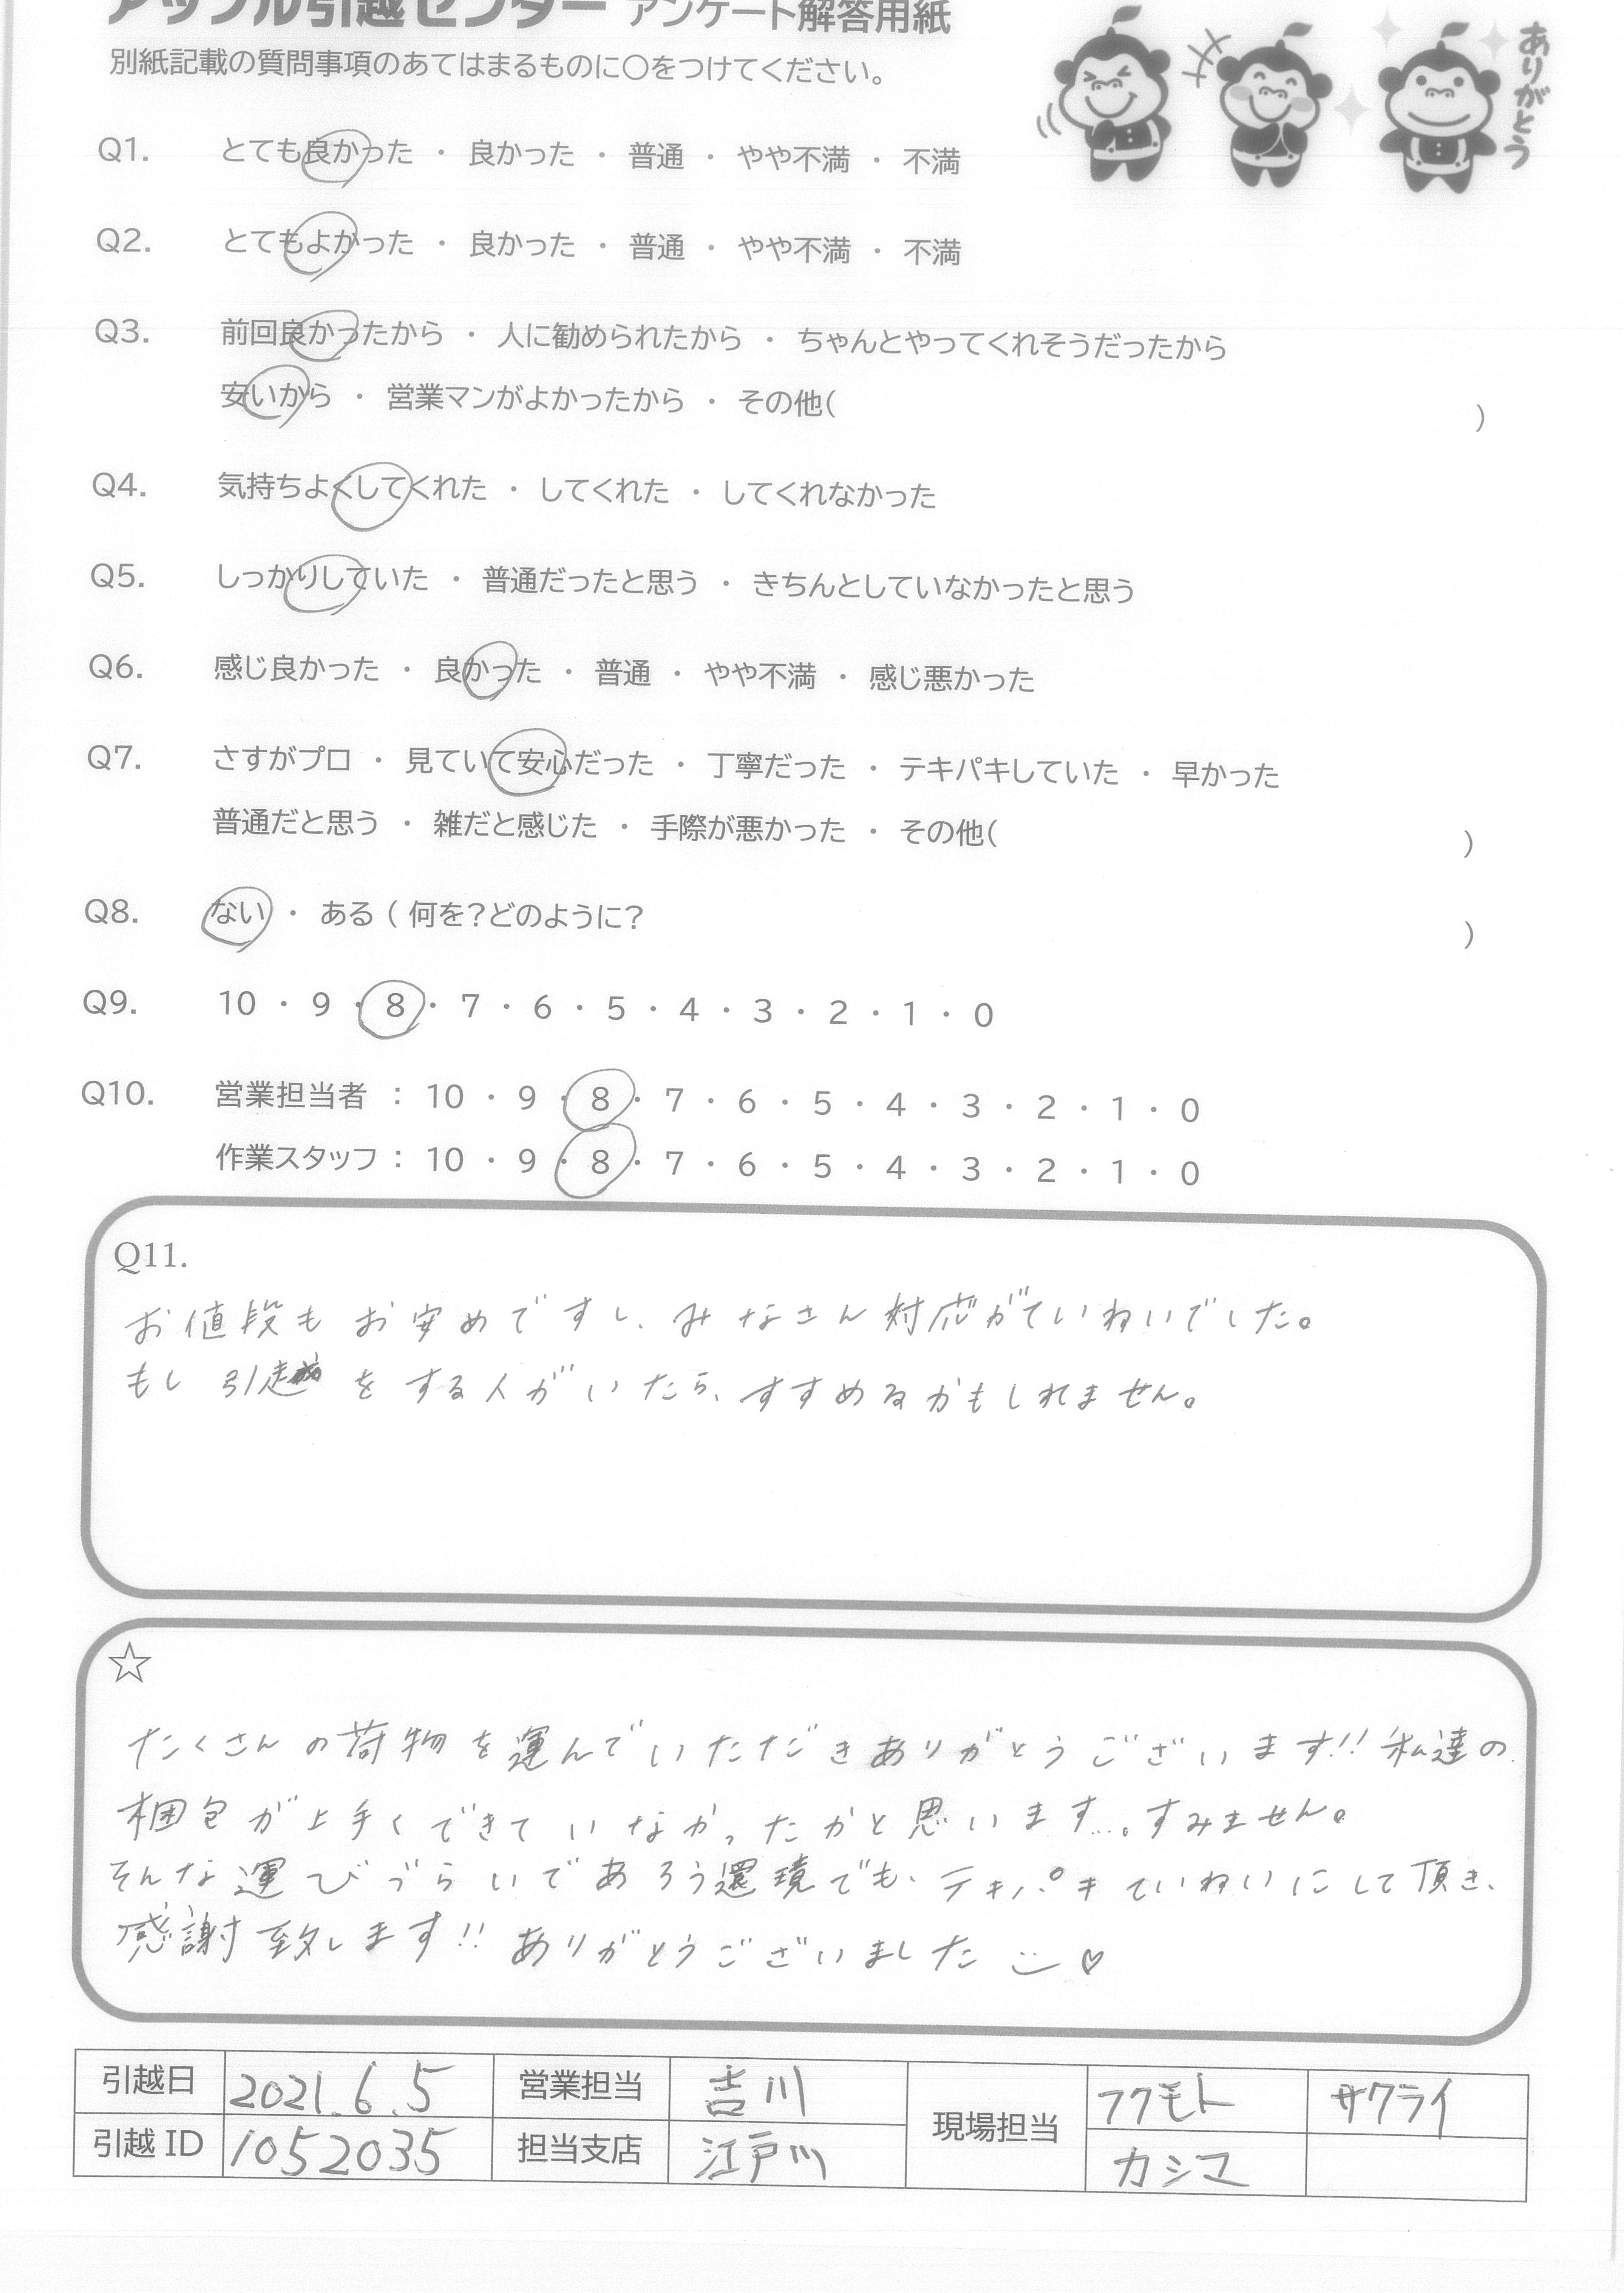 アップル引越センター アンケート解答用紙
別紙記載の質問事項のあてはまるものに○をつけてください。
ありがとう
Q1. とても良かった ・ 良かった ・ 普通 ・ やや不満 ・ 不満
Q2. とてもよかった ・ 良かった ・ 普通 ・ やや不満 ・ 不満
Q3. 前回良かったから ・ 人に勧められたから ・ ちゃんとやってくれそうだったから
安いから ・ 営業マンがよかったから ・ その他( )
Q4. 気持ちよくしてくれた ・ してくれた ・ してくれなかった
Q5. しっかりしていた ・ 普通だったと思う ・ きちんとしていなかったと思う
Q6. 感じ良かった ・ 良かった ・ 普通 ・ やや不満 ・ 感じ悪かった
Q7. さすがプロ ・ 見ていて安心だった ・ 丁寧だった ・ テキパキしていた ・ 早かった
普通だと思う ・ 雑だと感じた ・ 手際が悪かった ・ その他( )
Q8. ない ・ ある ( 何を?どのように? )
Q9. 10 ・ 9 ・ 8 ・ 7 ・ 6 ・ 5 ・ 4 ・ 3 ・ 2 ・ 1 ・ 0
Q10. 営業担当者 : 10 ・ 9 ・ 8 ・ 7 ・ 6 ・ 5 ・ 4 ・ 3 ・ 2 ・ 1 ・ 0
作業スタッフ : 10 ・ 9 ・ 8 ・ 7 ・ 6 ・ 5 ・ 4 ・ 3 ・ 2 ・ 1 ・ 0
Q11.
お値段もお安めですし、みなさん対応がていねいでした。
もし引越をする人がいたら、すすめるかもしれません。
☆
たくさんの荷物を運んでいただきありがとうございます!! 私達の
梱包が上手くできていなかったかと思います…。すみません。
そんな運びづらいであろう還境でも、テキパキていねいにして頂き、
感謝致します!! ありがとうございました ♡
引越日 2021.6.5 営業担当 吉川 現場担当 フクモト サクライ
引越 ID 1052035 担当支店 江戸川 カシマ